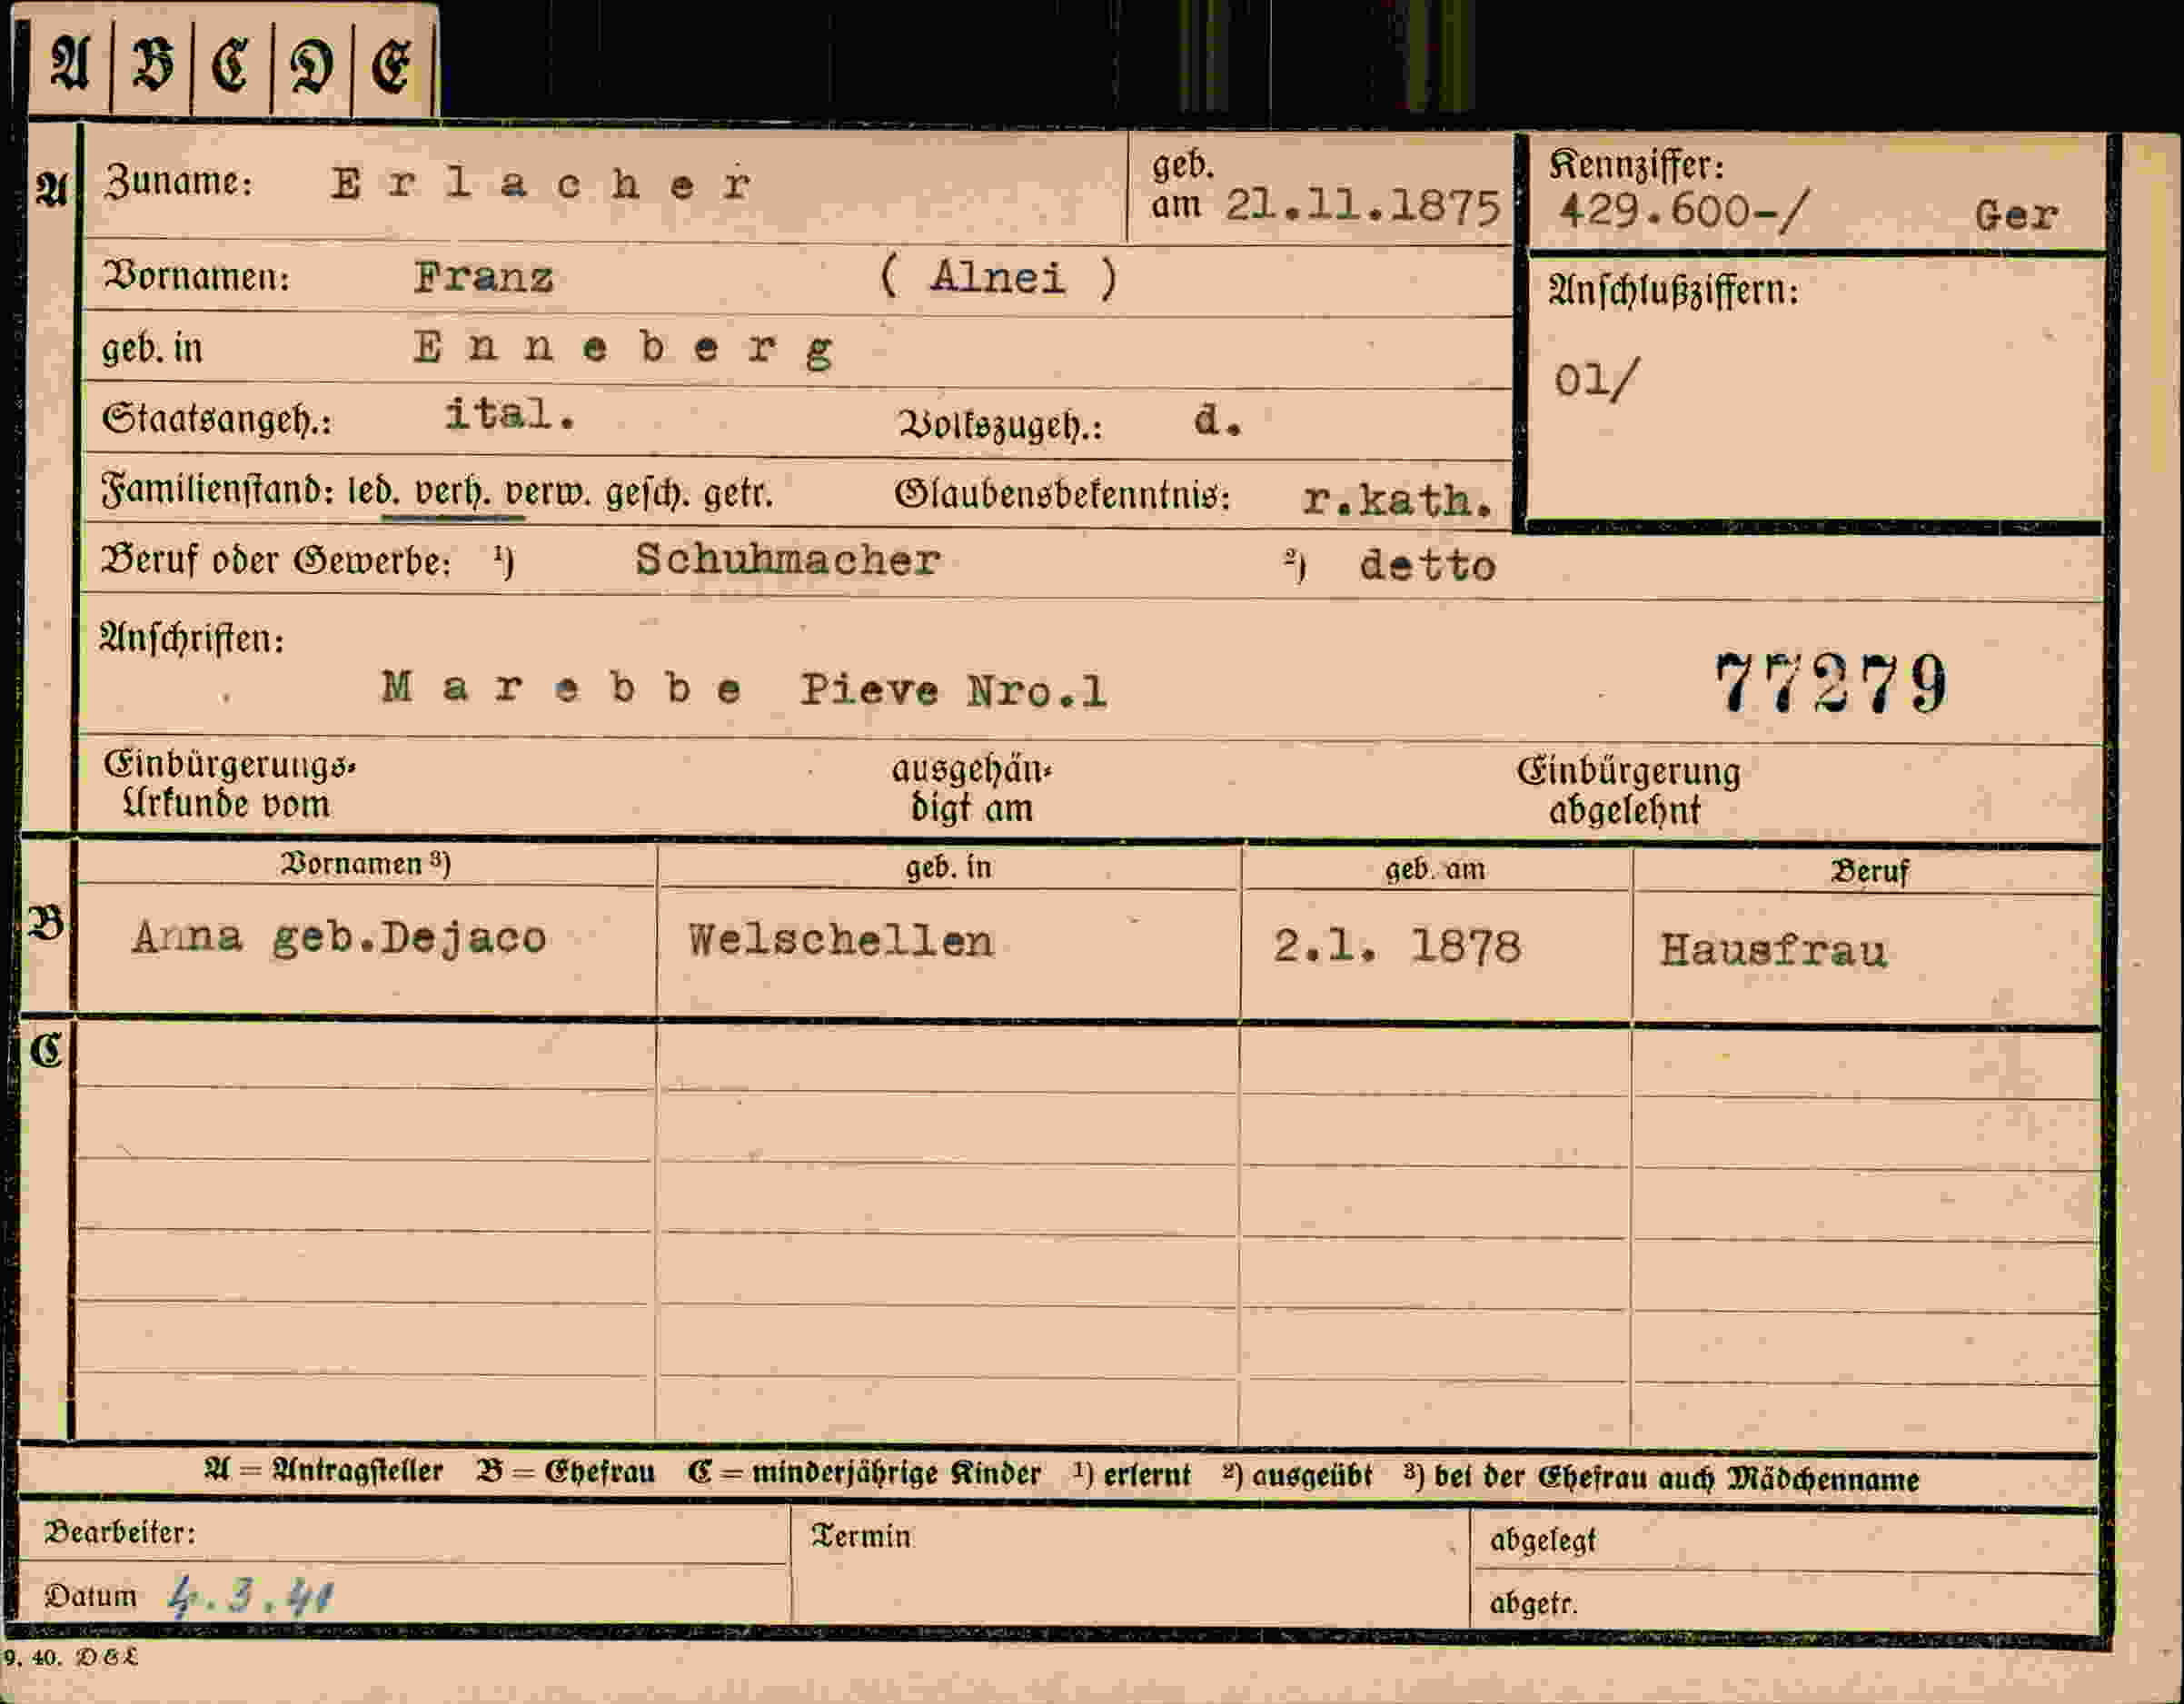 A B C D E
A Zuname: Erlacher geb. am 21.11.1875 Kennziffer: 429.600-/ Ger
Vornamen: Franz ( Alnei ) Anschlußziffern:
geb. in Enneberg 01/
Staatsangeh.: ital. Volkszugeh.: d.
Familienstand: led. verh. verw. gesch. getr. Glaubensbekenntnis: r.kath.
Beruf oder Gewerbe: ¹) Schuhmacher ²) detto
Anschriften:
Marebbe Pieve Nro.1 77279
Einbürgerungs- ausgehän- Einbürgerung
Urkunde vom digt am abgelehnt
Vornamen ³) geb. in geb. am Beruf
B Anna geb.Dejaco Welschellen 2.1. 1878 Hausfrau
C
A = Antragsteller B = Ehefrau C = minderjährige Kinder ¹) erlernt ²) ausgeübt ³) bei der Ehefrau auch Mädchenname
Bearbeiter: Termin abgelegt
Datum 4.3.41 abgetr.
9. 40. DEL